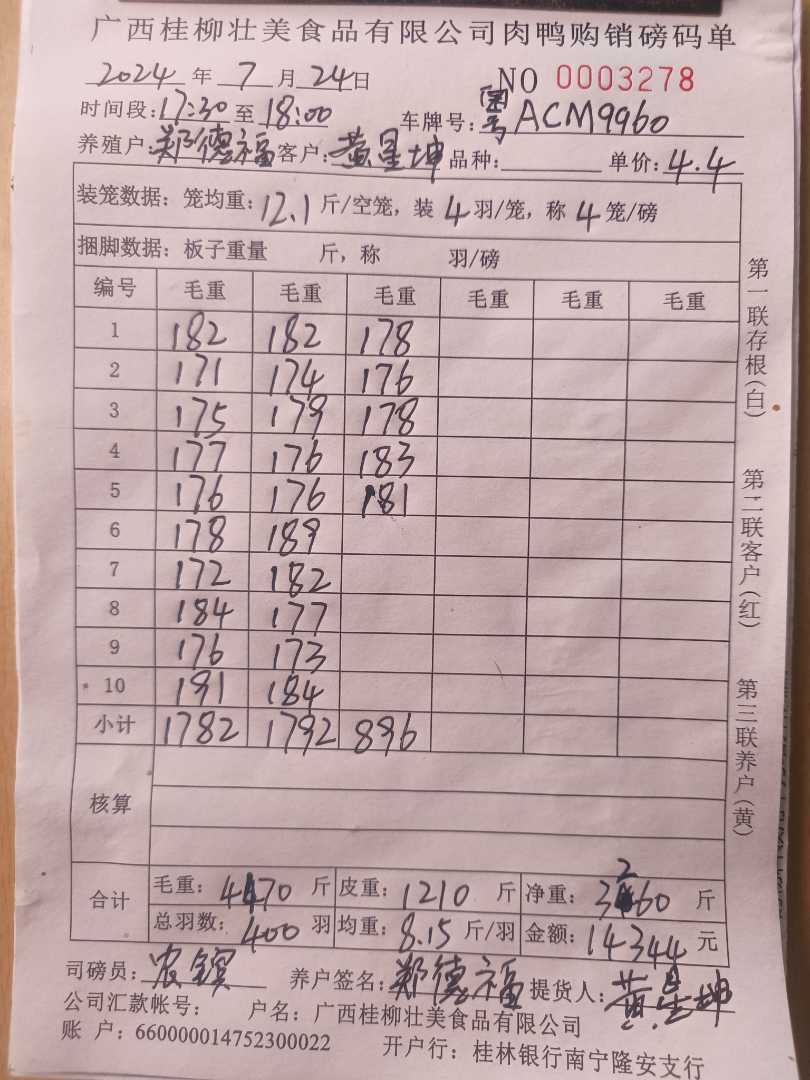 广西桂柳壮美食品有限公司肉鸭购销磅码单
2024年7月24日 NO 0003278
时间段:17:30至18:00 车牌号:粤ACM9960
养殖户:郑德福 客户:黄星坤 品种: 单价:4.4
装笼数据:笼均重:12.1斤/空笼,装4羽/笼,称4笼/磅
捆脚数据:板子重量 斤,称 羽/磅
编号 毛重 毛重 毛重 毛重 毛重 毛重
1 182 182 178
2 171 174 176
3 175 179 178
4 177 176 183
5 176 176 181
6 178 189
7 172 182
8 184 177
9 176 173
10 191 184
小计 1782 1792 896
核算
合计 毛重:4470斤 皮重:1210斤 净重:3260斤
总羽数:400羽 均重:8.15斤/羽 金额:14344元
司磅员:农镔 养户签名:郑德福 提货人:黄星坤
公司汇款帐号: 户名:广西桂柳壮美食品有限公司
账户:660000014752300022 开户行:桂林银行南宁隆安支行
第一联存根(白)
第二联客户(红)
第三联养户(黄)